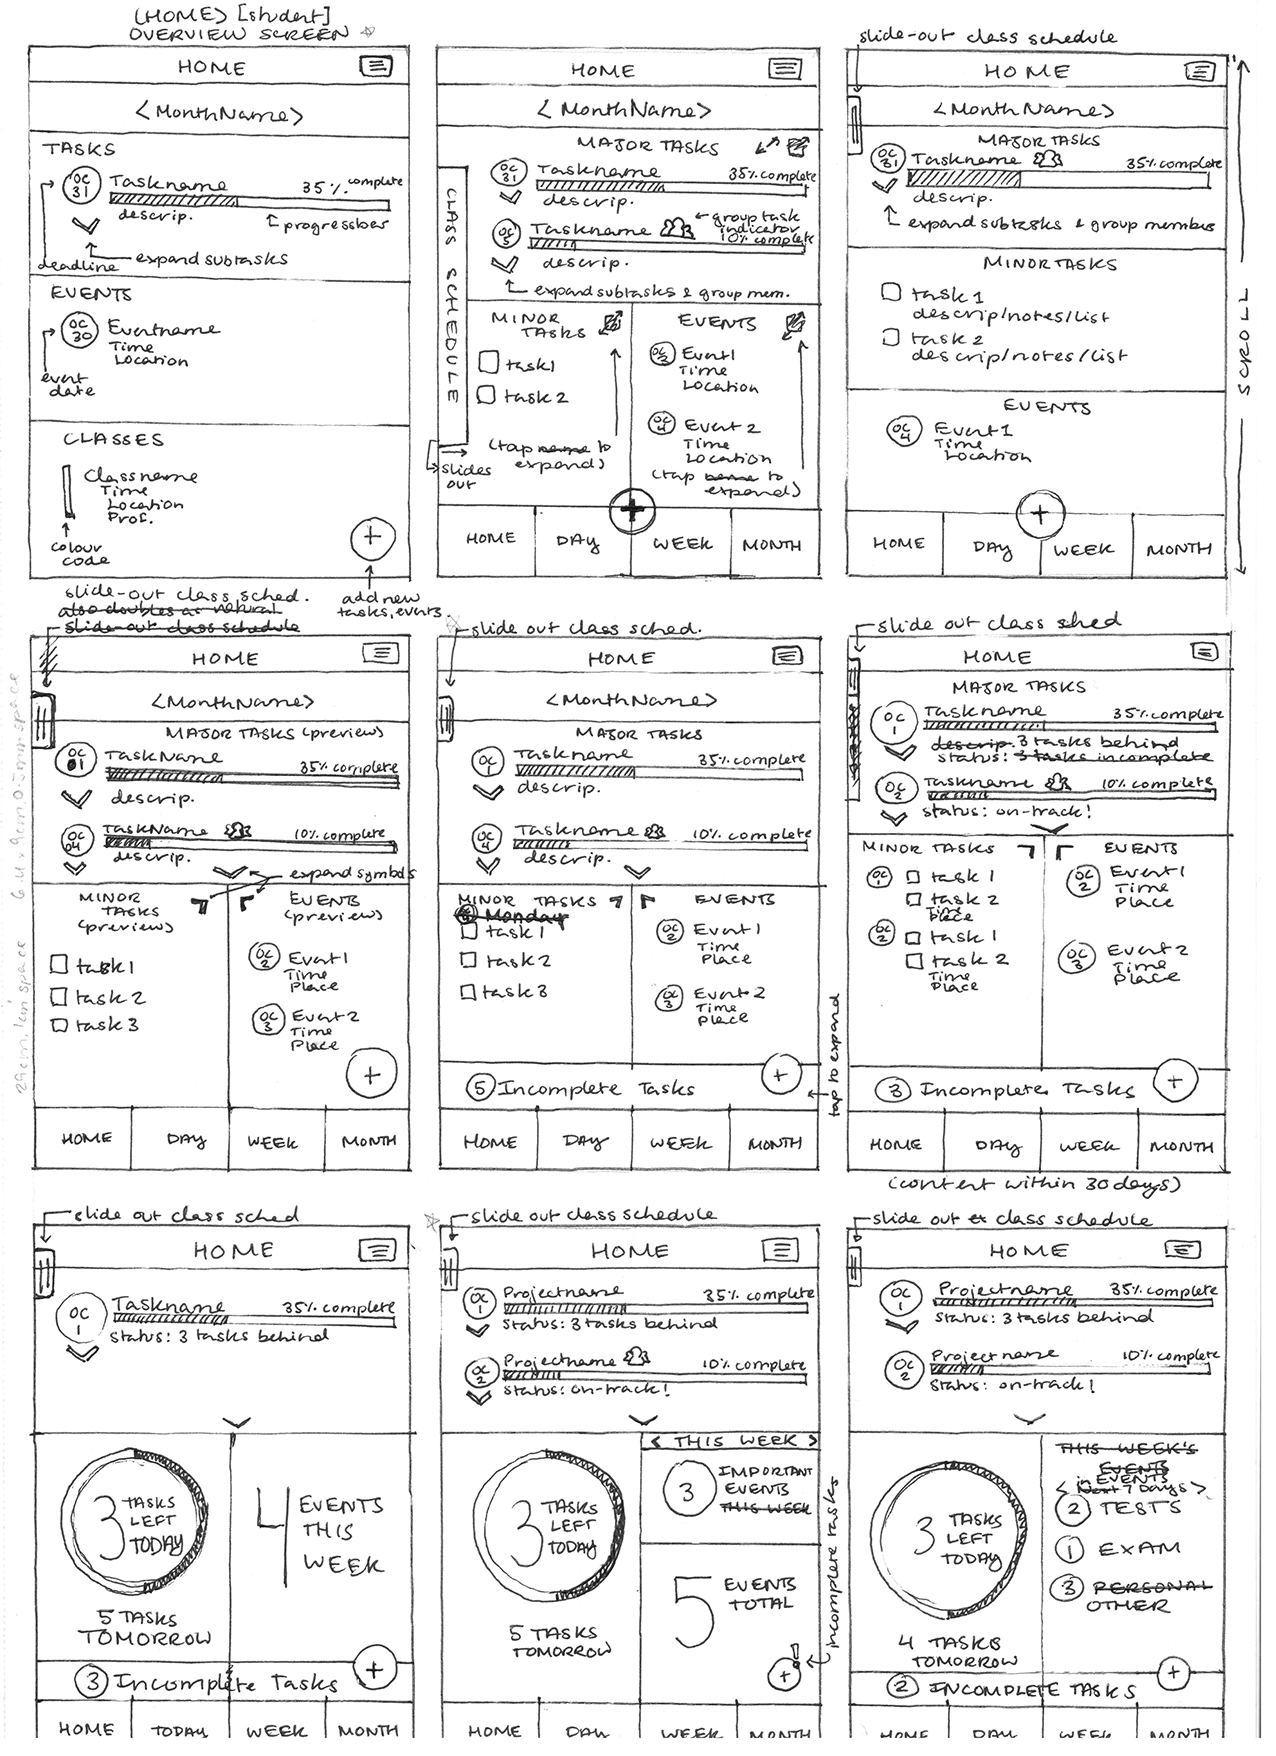 (HOME) [student]
OVERVIEW SCREEN
HOME
<MonthName>
TASKS
OC 31
Taskname
35% complete
descrip.
progressbar
deadline
expand subtasks
EVENTS
OC 30
Eventname
Time
Location
event date
CLASSES
Classname
Time
Location
Prof.
colour code
+
add new tasks, events.
HOME
<MonthName>
MAJOR TASKS
CLASS SCHEDULE
OC 31
Taskname
35% complete
descrip.
OC 5
Taskname
group task indicator
10% complete
descrip.
expand subtasks & group mem.
MINOR TASKS
task1
task2
(tap name to expand)
slides out
EVENTS
OC 2
Event1
Time
Location
OC 4
Event 2
Time
Location
(tap name to expand)
+
HOME
DAY
WEEK
MONTH
slide-out class schedule
HOME
<MonthName>
MAJOR TASKS
OC 31
Taskname
35% complete
descrip.
expand subtasks & group membs
MINOR TASKS
task 1
descrip/notes/list
task 2
descrip/notes/list
EVENTS
OC 4
Event1
Time
Location
+
HOME
DAY
WEEK
MONTH
SCROLL
slide-out class sched.
also doubles as natural
slide-out class schedule
HOME
<MonthName>
MAJOR TASKS (preview)
OC 01
TaskName
35% complete
descrip.
OC 04
TaskName
10% complete
descrip.
expand symbols
MINOR TASKS (preview)
task1
task2
task3
EVENTS (preview)
OC 2
Event1
Time
Place
OC 3
Event2
Time
Place
+
HOME
DAY
WEEK
MONTH
slide out class sched.
HOME
<MonthName>
MAJOR TASKS
OC 1
Taskname
35% complete
descrip.
OC 4
Taskname
10% complete
descrip.
MINOR TASKS
Monday
task1
task2
task3
EVENTS
OC 2
Event1
Time
Place
OC 3
Event2
Time
Place
5 Incomplete Tasks
+
tap to expand
HOME
DAY
WEEK
MONTH
slide out class sched
HOME
MAJOR TASKS
OC 1
Taskname
35% complete
descrip. 3 tasks behind
status: 3 tasks incomplete
OC 2
Taskname
10% complete
status: on-track!
MINOR TASKS
OC 1
task 1
task 2
Time
Place
OC 2
task 1
task 2
Time
Place
EVENTS
OC 2
Event1
Time
Place
OC 3
Event2
Time
Place
3 Incomplete Tasks
+
HOME
DAY
WEEK
MONTH
(content within 30 days)
slide out class sched
HOME
OC 1
Taskname
35% complete
status: 3 tasks behind
3 TASKS LEFT TODAY
5 TASKS TOMORROW
4 EVENTS THIS WEEK
3 Incomplete Tasks
+
HOME
TODAY
WEEK
MONTH
slide out class schedule
HOME
OC 1
Projectname
35% complete
status: 3 tasks behind
OC 2
Projectname
10% complete
status: on-track!
3 TASKS LEFT TODAY
5 TASKS TOMORROW
< THIS WEEK >
3 IMPORTANT EVENTS THIS WEEK
5 EVENTS TOTAL
+
incomplete tasks
HOME
DAY
WEEK
MONTH
slide out class schedule
HOME
OC 1
Projectname
35% complete
status: 3 tasks behind
OC 2
Projectname
10% complete
status: on-track!
3 TASKS LEFT TODAY
4 TASKS TOMORROW
THIS WEEK'S EVENTS
EVENTS
< in Next 7 Days >
2 TESTS
1 EXAM
3 PERSONAL
OTHER
2 INCOMPLETE TASKS
+
HOME
DAY
WEEK
MONTH